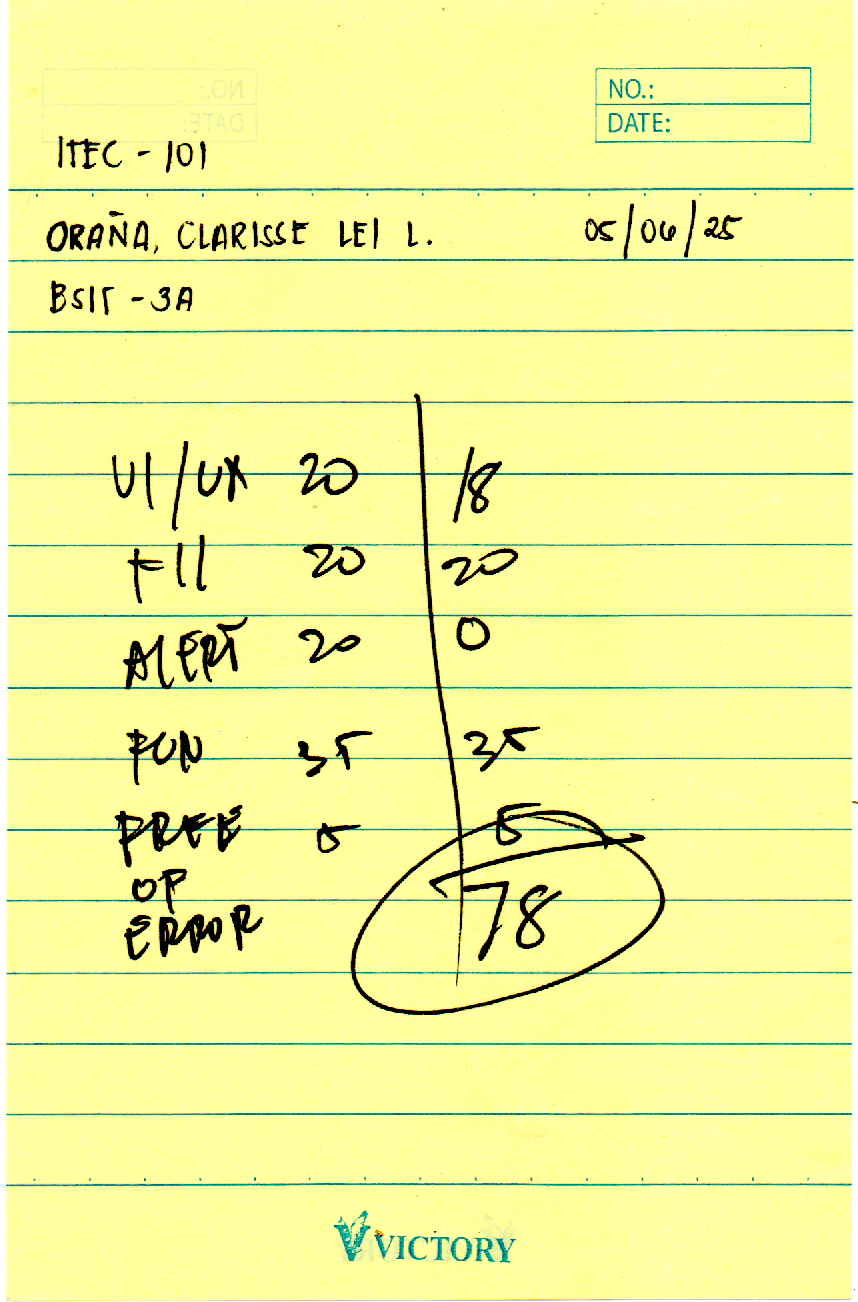 NO.:
DATE:
ITEC - 101
ORAÑA, CLARISSE LEI L. 05/06/25
BSIT - 3A
UI/UX 20 18
20 20
ALERT 20 0
FUN 35 35
FREE 5 5
OF 78
ERROR
VICTORY